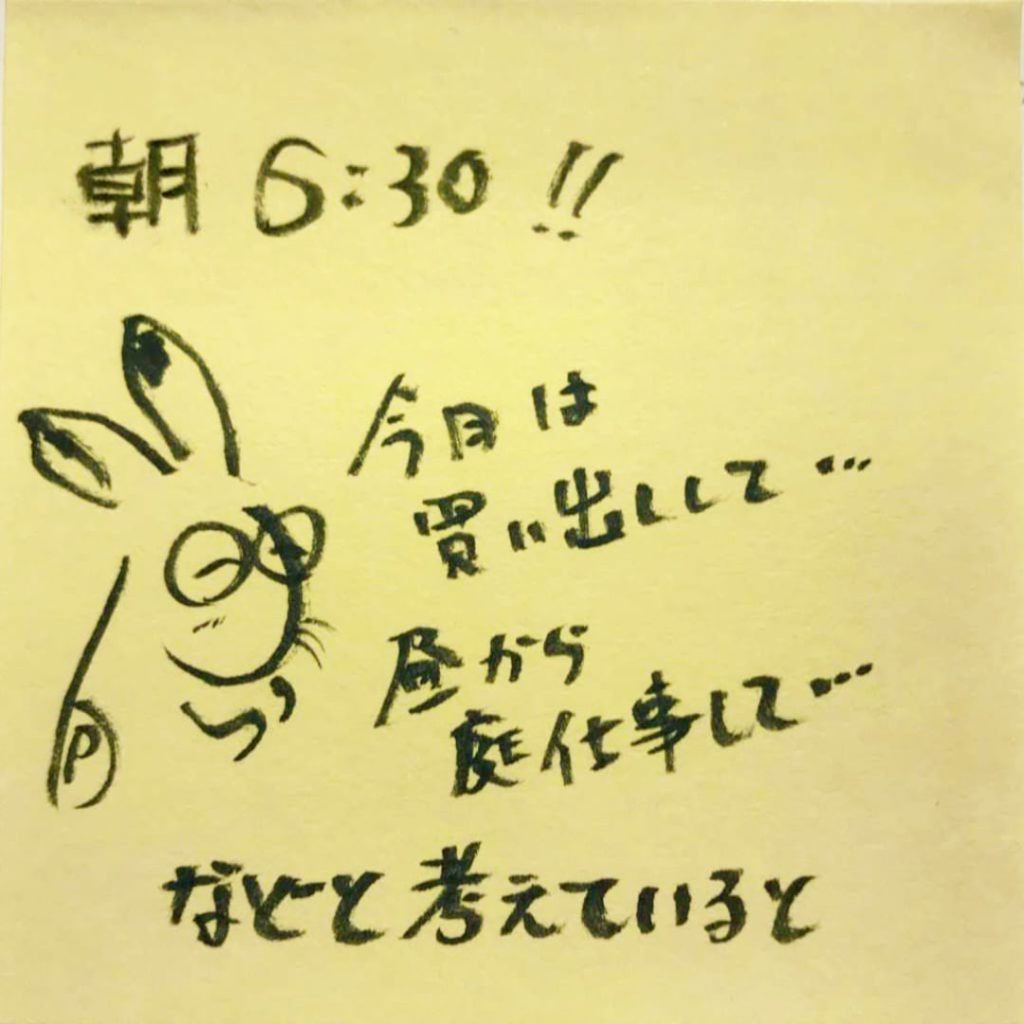 朝 6:30 !!
今日は
買い出しして…
昼から
庭仕事して…
などと考えていると